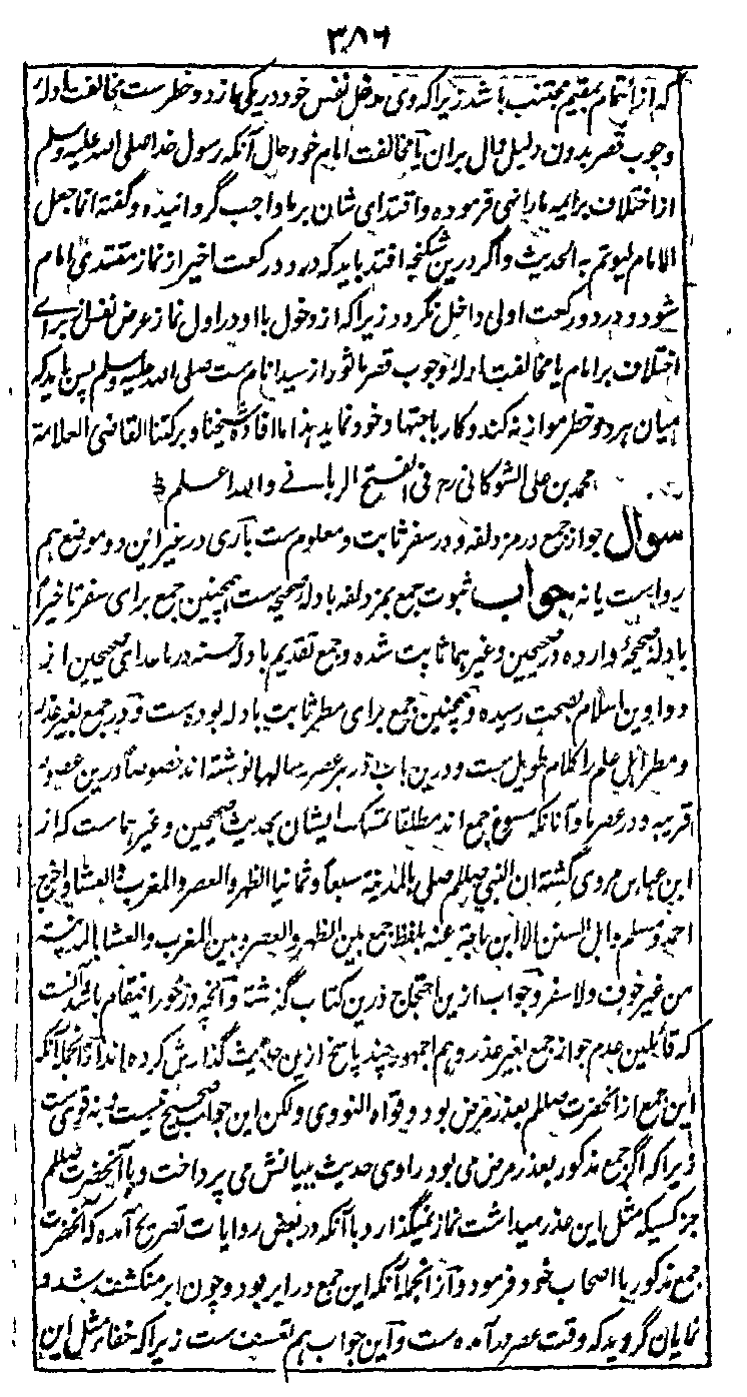 ۳۸۶
که از ائتمام بمقیم مجتنب باشد زیرا که وی مدخل نفس خود در یکی از دو خطر ست مخالفت ادلهٔ
وجوب قصر بدون دلیل دال بران یا مخالفت امام خود حال آنکه رسول خدا صلی الله علیه وسلم
از اختلاف بر ایمه ما راضی نفرموده و اقتدای شان بر ما واجب گردانیده و گفته انما جعل
الامام لیوتم به الحدیث و اگر درین شکنجه افتد باید که در دو رکعت اخیر از نماز مقتدی امام
شود و در دو رکعت اولی داخل نگردد زیرا که از دخول با او در اول نماز عرض نفس ست برای
اختلاف بر امام یا مخالفت ادلهٔ وجوب قصر ماثور از سید انام ست صلی الله علیه وسلم پس باید که
میان هر دو خطر موازنه کند و کار باجتهاد خود نماید هذا ما افاده شیخنا و برکتنا القاضی العلامة
محمد بن علی الشوکانی رح فی الفتح الربانے والله اعلم
سوال جواز جمع در مزدلفه و در سفر ثابت و معلوم ست باری در غیر این دو موضع هم
رواست یا نه جواب ثبوت جمع بمزدلفه بادلهٔ صحیحه ست همچنین جمع برای سفر تاخیرا
بادلهٔ صحیحهٔ وارده در صحیحین و غیرهما ثابت شده و جمع تقدیم بادلهٔ حسنه در ماعدای صحیحین از
دواوین اسلام بصحت رسیده و همچنین جمع برای مطر ثابت بادله بوده ست و در جمع بغیر عذر
و مطر اهل علم را کلام طویل ست و درین باب در هر عصر رسالها نوشته اند خصوصا درین عصور
قریبه و در عصر ما و آنانکه مسوغ جمع اند مطلقا تمسک ایشان بحدیث صحیحین و غیرهما ست که از
ابن عباس مروی گشته ان النبی صللم صلی بالمدینة سبعا و ثمانیا الظهر والعصر والمغرب والعشا واخرج
احمد و مسلم و اهل السنن الا ابن ماجة عنه بلفظ جمع بین الظهر والعصر وبین المغرب والعشا بالمدینة
من غیر خوف ولا سفر و جواب ازین احتجاج درین کتاب گذشته و آنچه درخور اینمقام باشد آنست
که قائلین عدم جواز جمع بغیر عذر و هم الجمهور چند پاسخ ازین حدیث گذارش کرده اند از انجمله آنکه
این جمع از آنحضرت صللم بعذر مرض بود وقواه النووی ولکن این جواب صحیح نیست و نه قوی ست
زیرا که اگر جمع مذکور بعذر مرض می بود راوی حدیث ببیانش می پرداخت و با آنحضرت صللم
جز کسیکه مثل این عذر میداشت نماز نمیگذارد با آنکه در بعض روایات تصریح آمده که آنحضرت
جمع مذکور با اصحاب خود فرمود و از انجمله آنکه این جمع در ابر بود و چون ابر منکشف شد و
نمایان گردید که وقت عصر درآمده ست و این جواب هم تعسف ست زیرا که خفاء مثل این